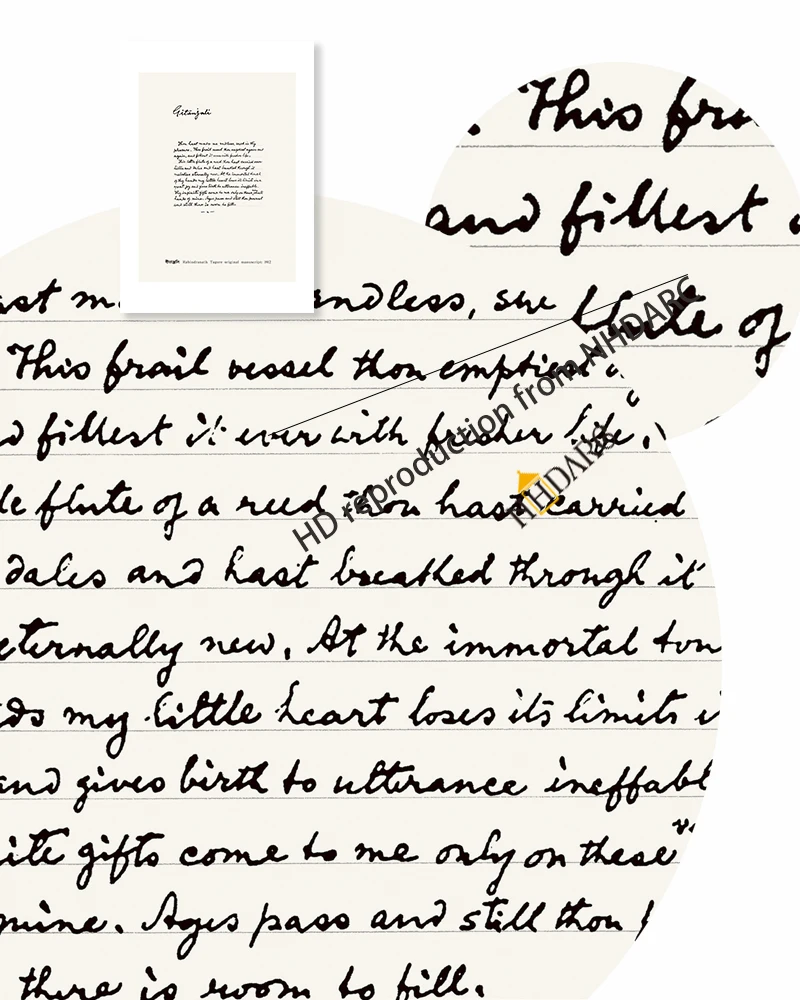 Gitanjali
Thou hast made me endless, such is thy
pleasure. This frail vessel thou emptiest again and
again, and fillest it ever with fresher life.
This little flute of a reed thou hast carried over
hills and dales and hast breathed through it
melodies eternally new. At the immortal touch
of thy hands my little heart loses its limits in
joy and gives birth to utterance ineffable.
Thy infinite gifts come to me only on these very
hands of mine. Ages pass and still thou pourest
and still there is room to fill.
Rabindranath Tagore original manuscript 1912
. This fra
and fillest
flute of
ast m ndless, su
This frail vessel thou emptiest
d fillest it ever with fresher life,
le flute of a reed thou hast carried
dales and hast breathed through it
eternally new, At the immortal tou
ds my little heart loses its limits i
and gives birth to utterance ineffabl
ite gifts come to me only on these v
mine. Ages pass and still thou p
there is room to fill.
HD reproduction from NHDARC
NHDARC